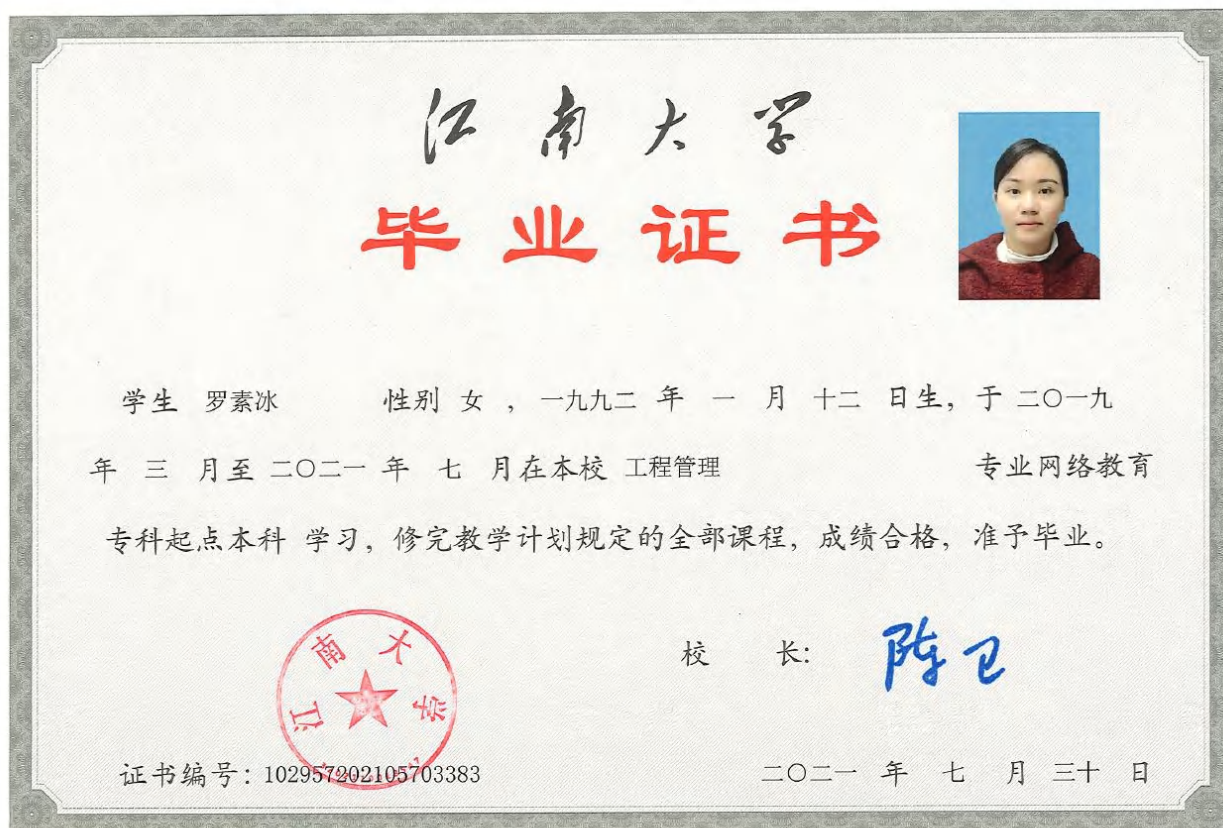 江南大学
毕业证书
学生 罗素冰 性别 女 ，一九九二 年 一 月 十二 日生，于 二〇一九
年 三 月至 二〇二一 年 七 月在本校 工程管理 专业网络教育
专科起点本科 学习，修完教学计划规定的全部课程，成绩合格，准予毕业。
江南大学
校 长：陈卫
证书编号：102957202105703383
二〇二一 年 七 月 三十 日